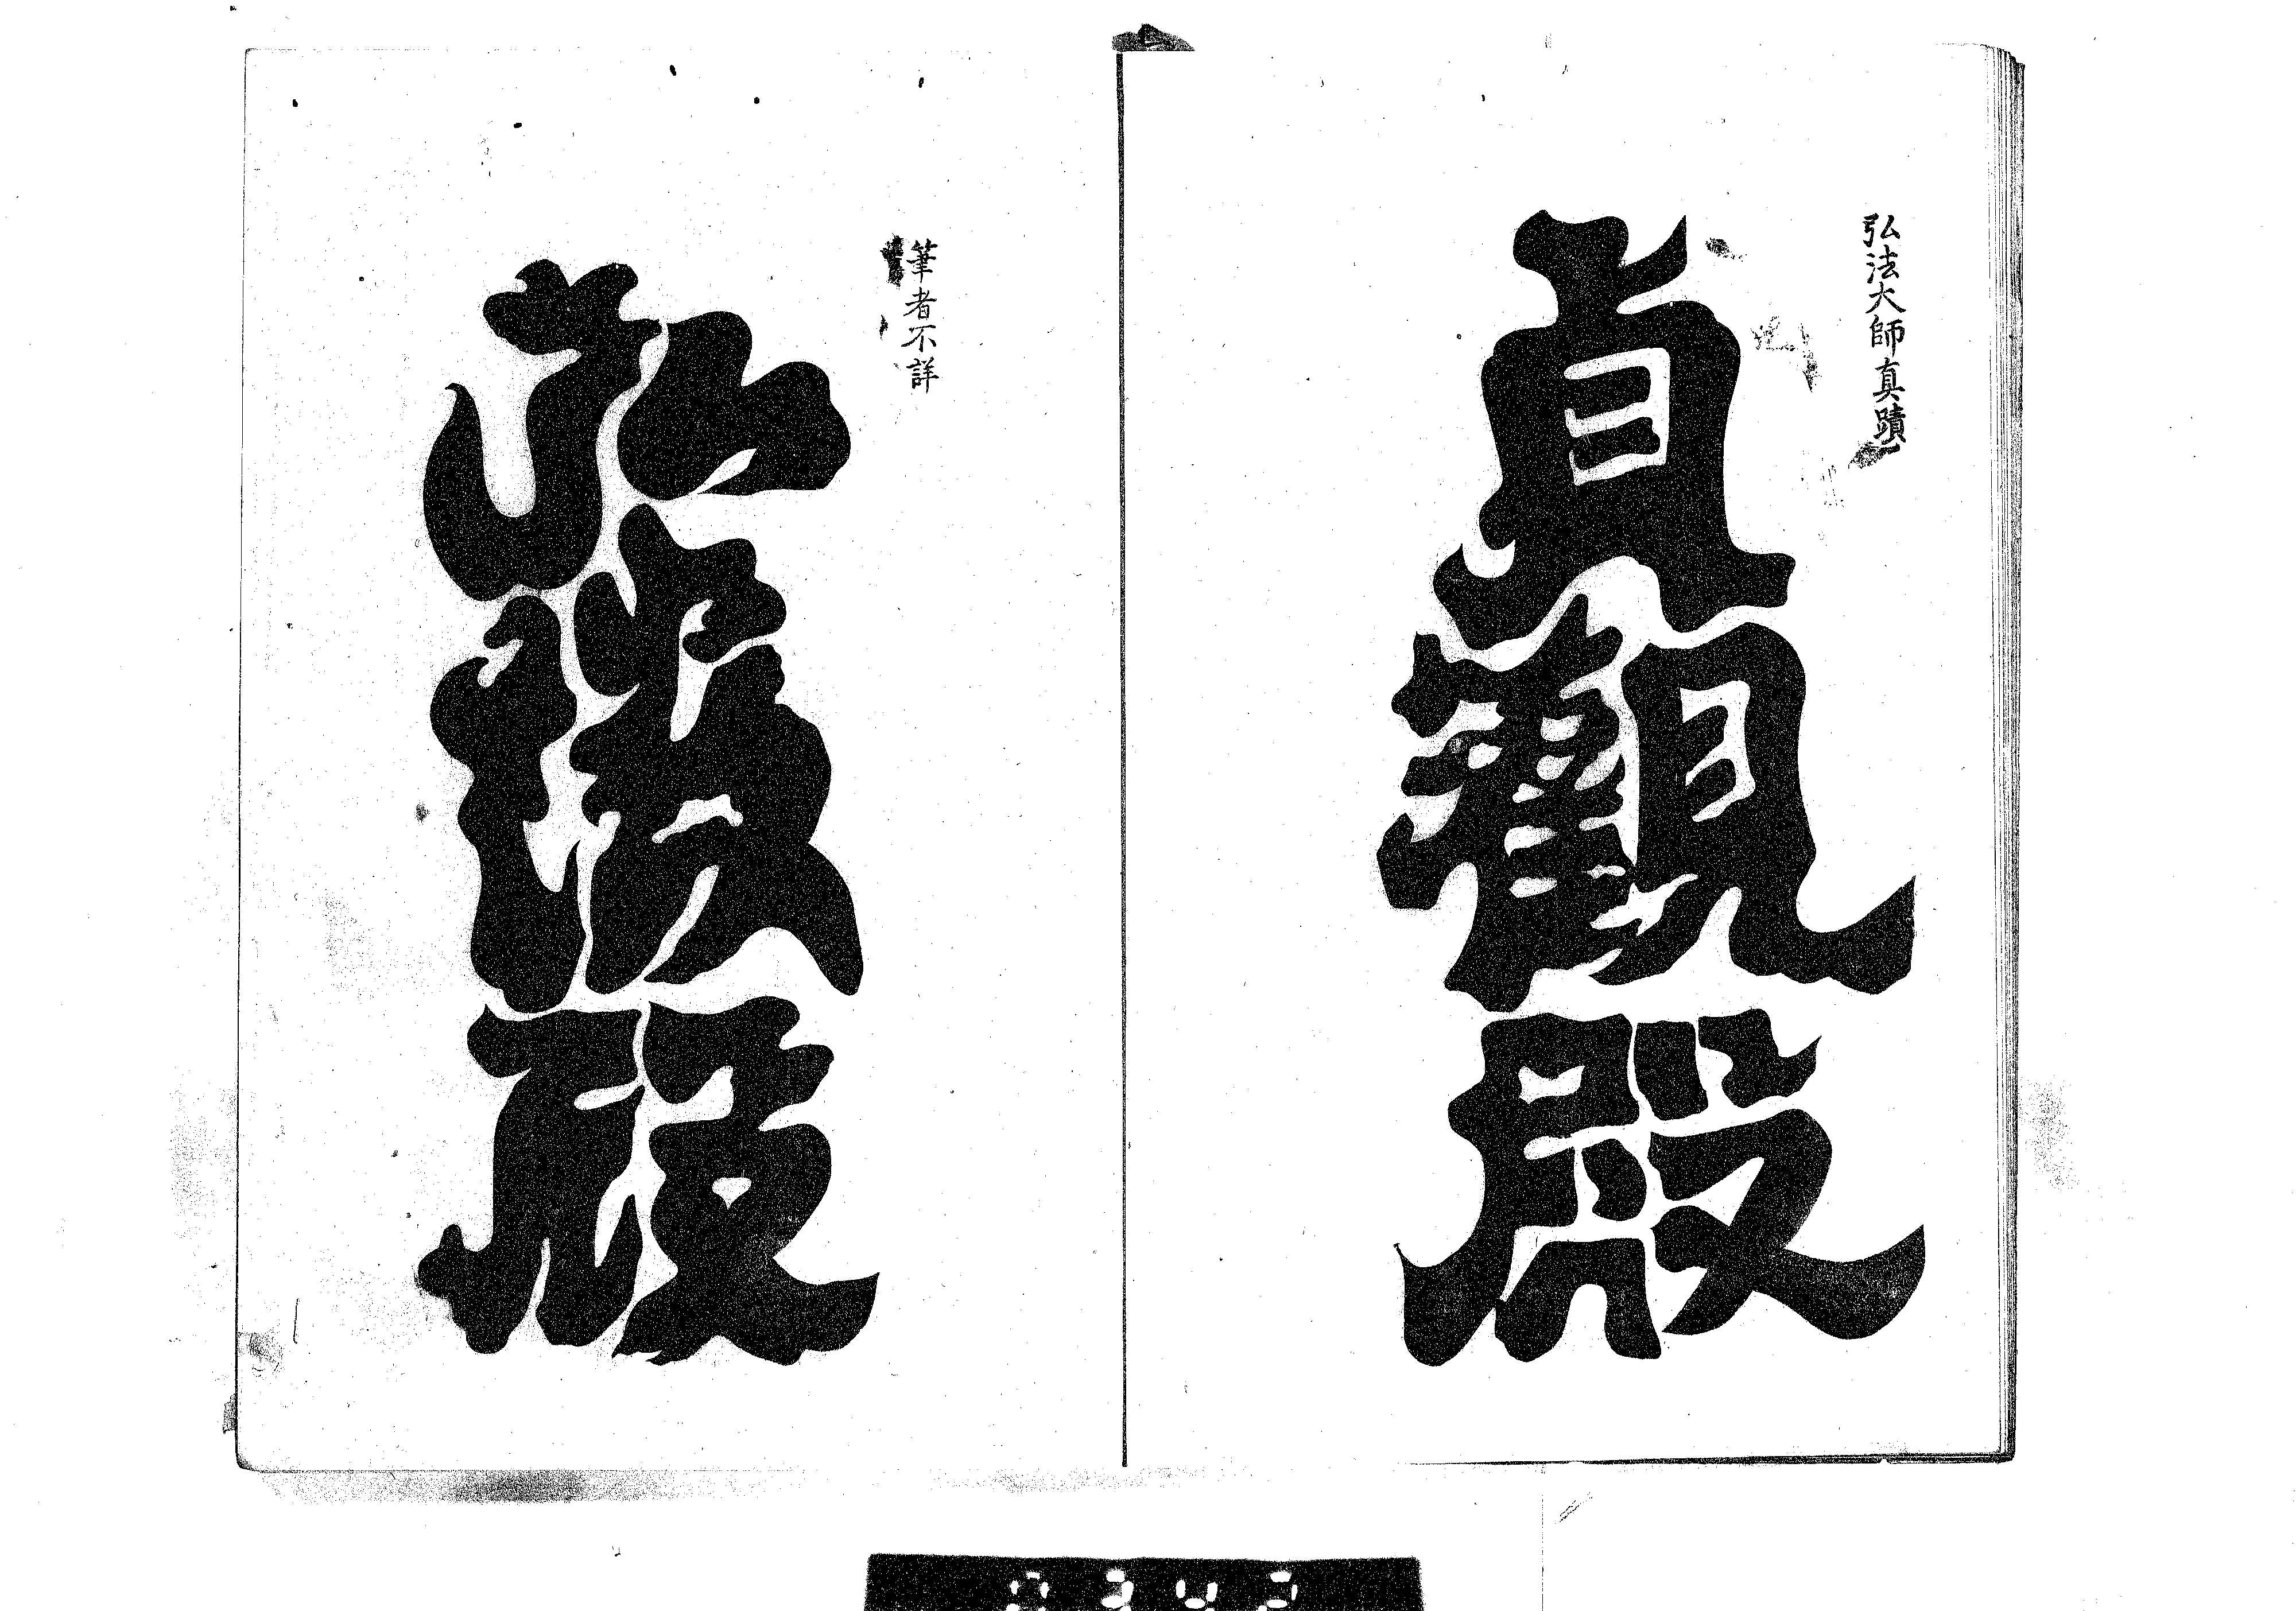 弘法大師真蹟
貞觀殿
筆者不詳
弘徽殿